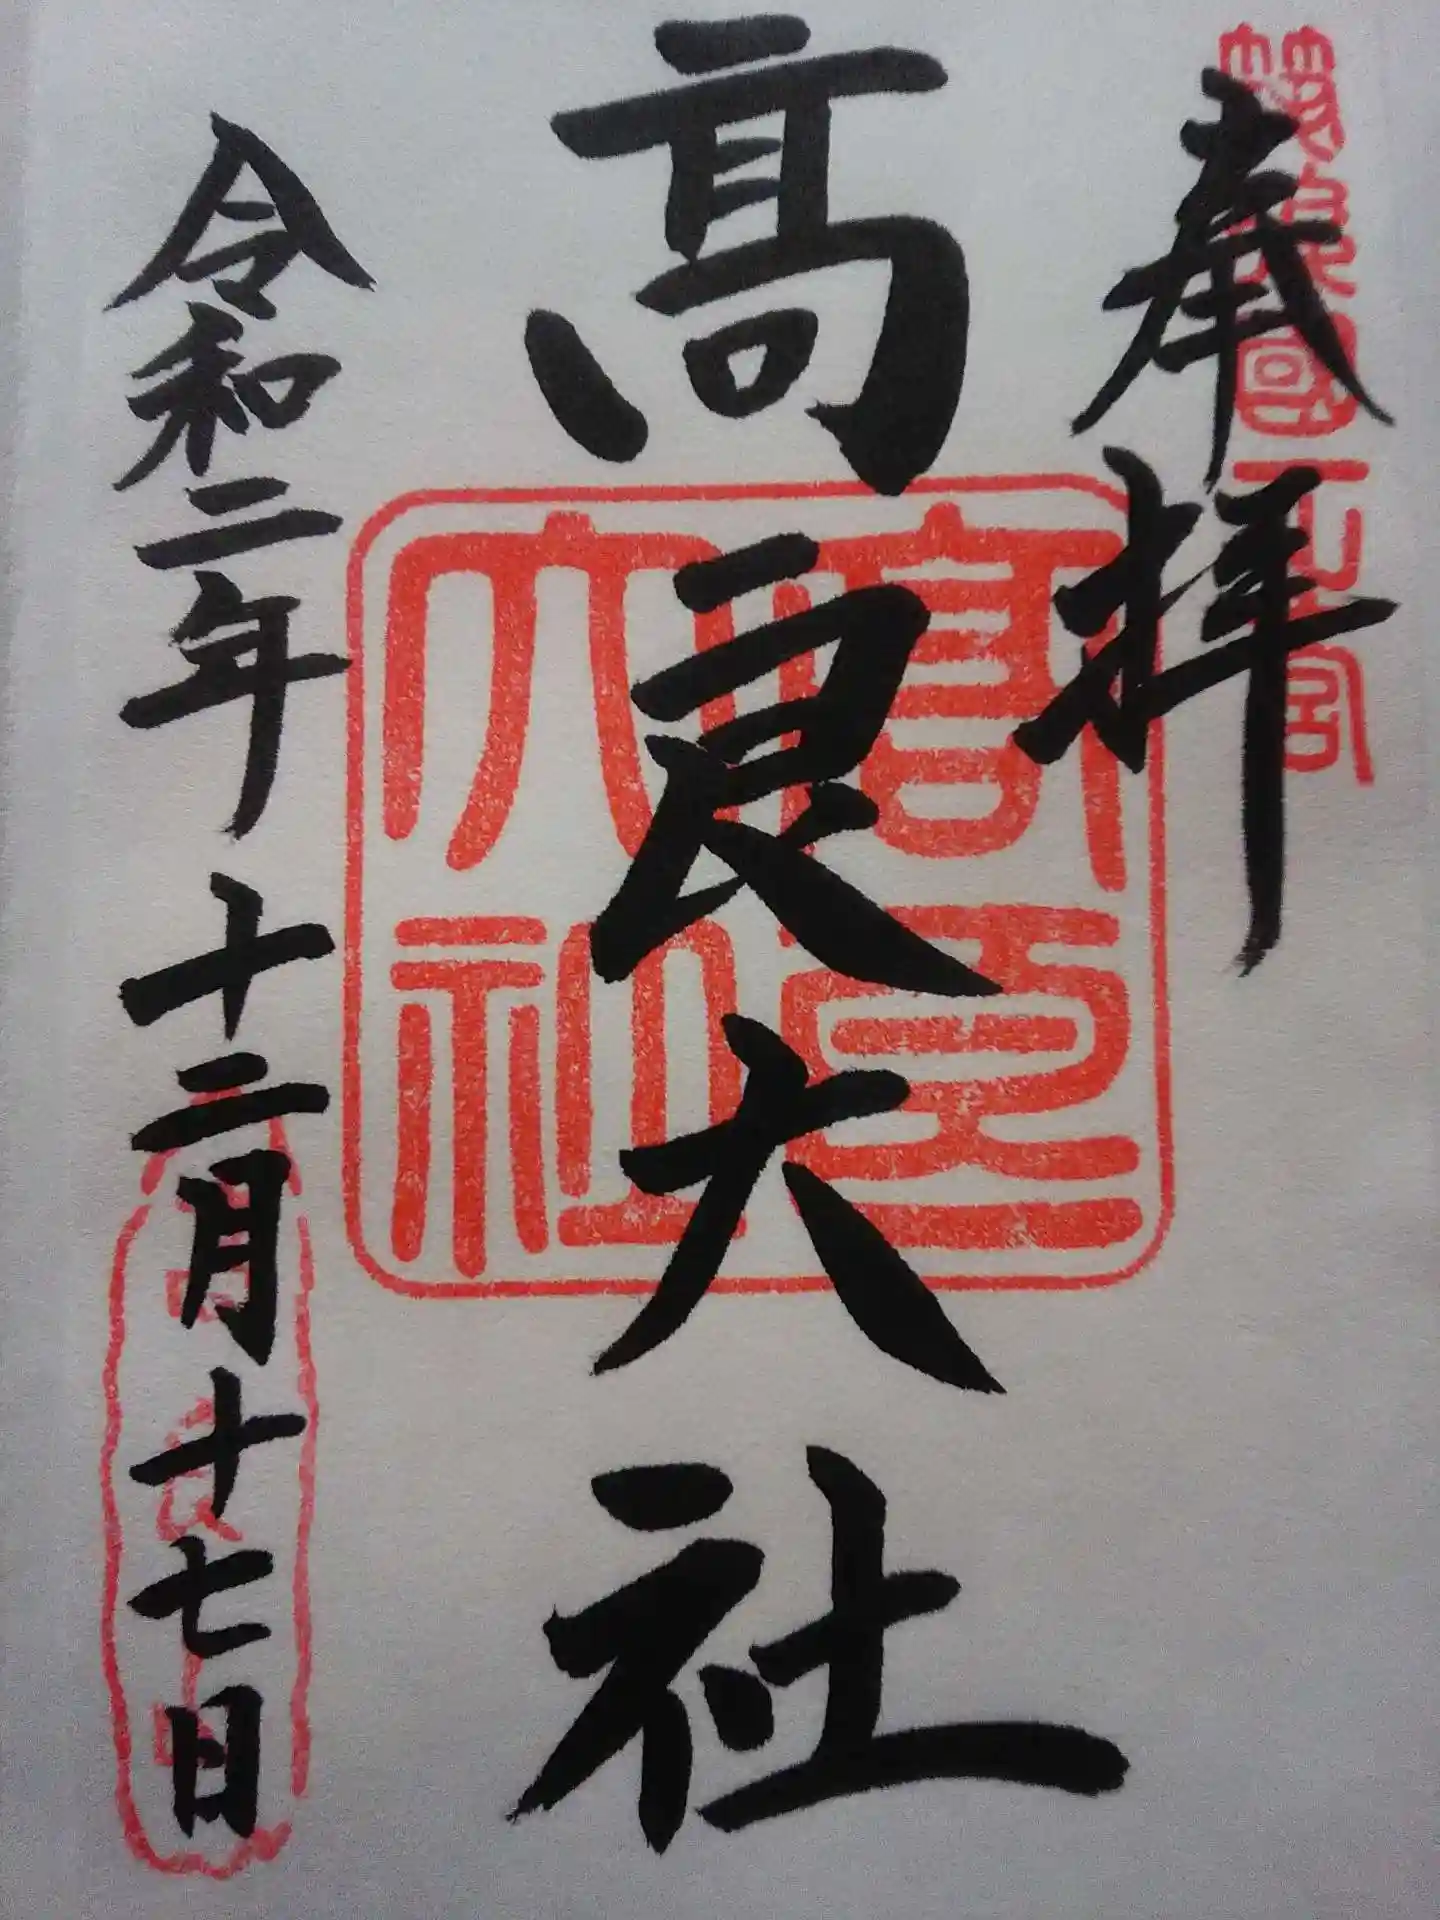 奉拝
筑後國一之宮
髙良大社
高良大社
令和二年十二月十七日